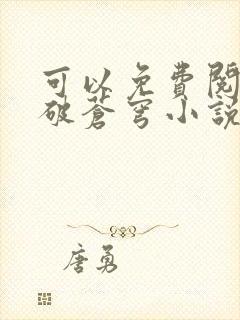 可以免費閱
破蒼穹小說
唐勇